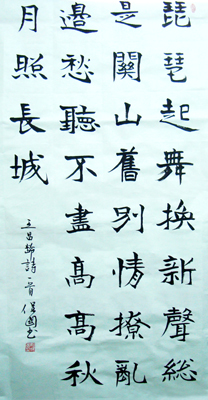 琵琶起舞換新聲總
是關山舊別情撩亂
邊愁聽不盡高高秋
月照長城
王昌齡詩一首保國书